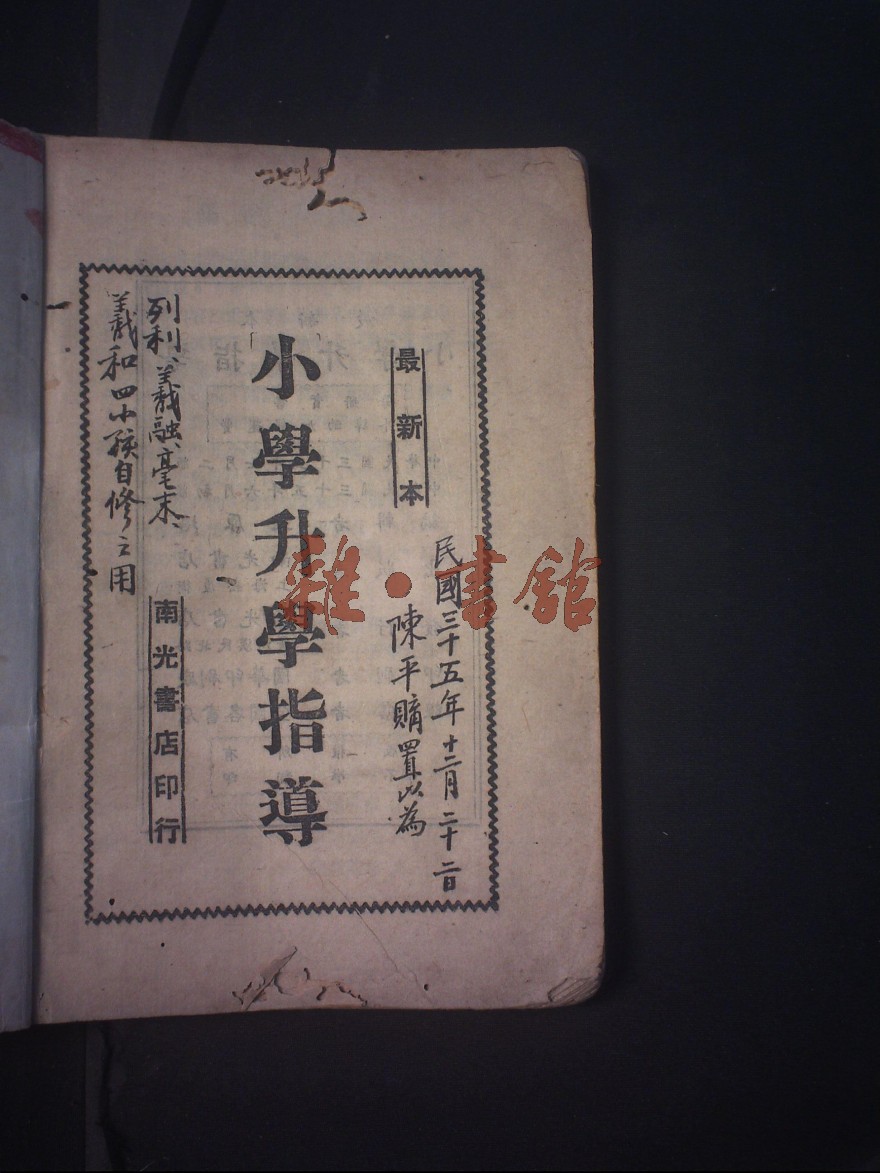 最新本
「小學升學指導」
南光書店印行
民國三十五年十二月二十二日
陳平購置以為
列利、義融、毫末、
義和四小孩自修之用
雜·書館